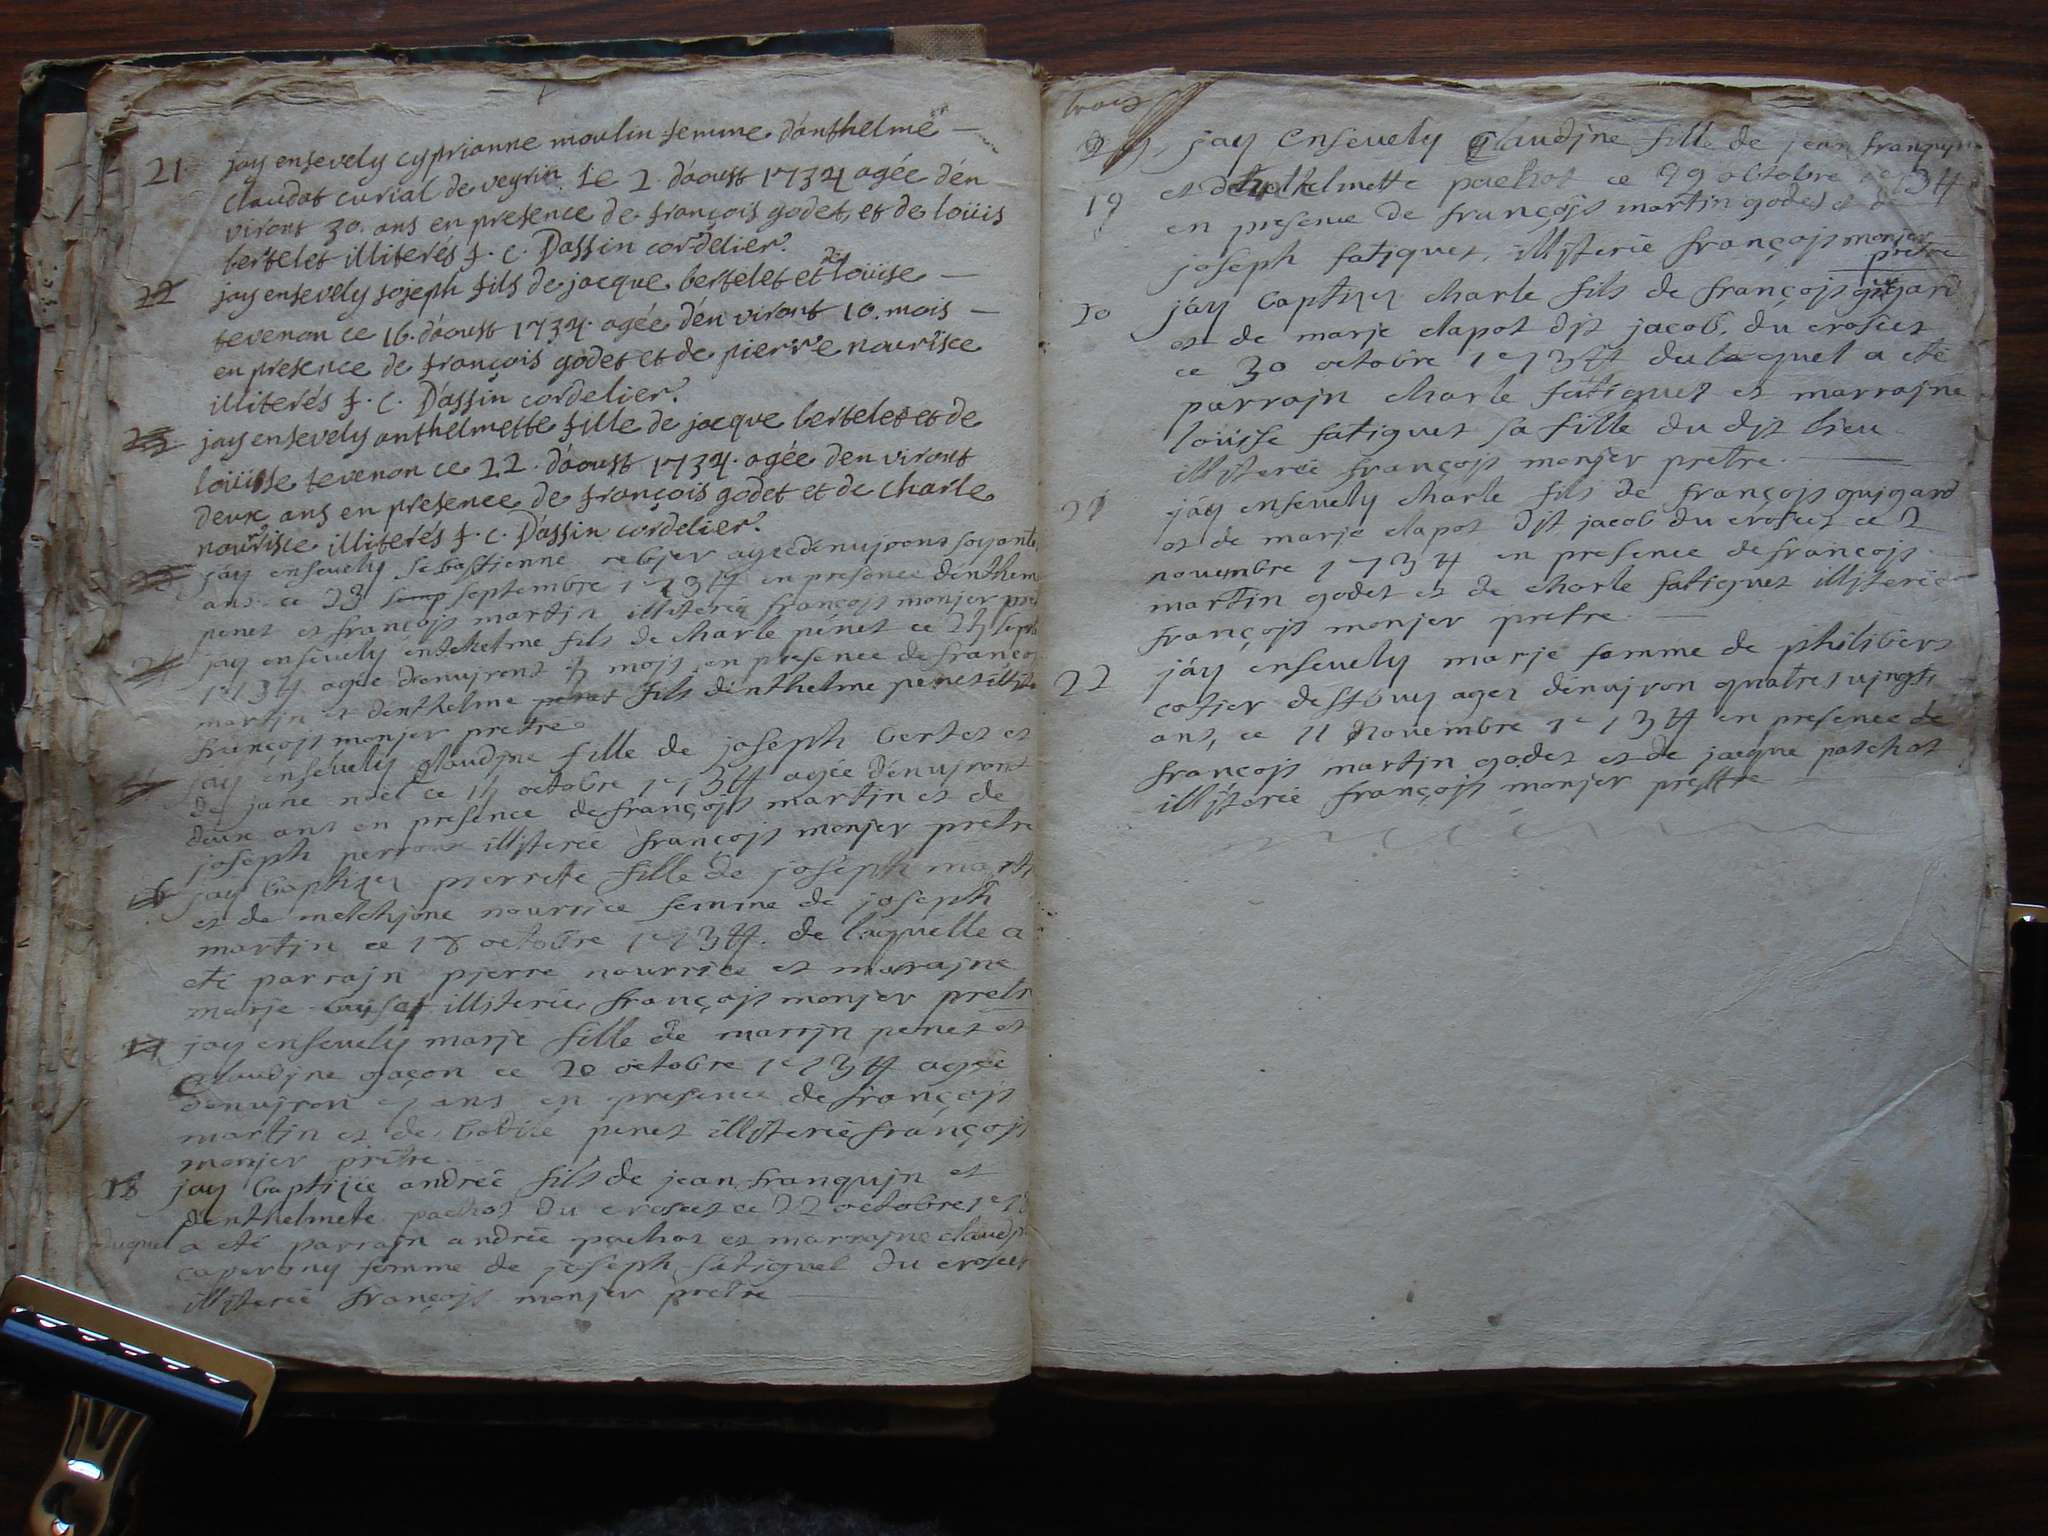 21. jay ensevely cyprianne moulin femme d'anthelme
claudat curial de veyrin le 2. d'aoust 1734 agée d'en
viront 30. ans en presence de françois godet et de loüis
bertelet illiterés f. c. Dassin cordelier.
22 jay ensevely joseph fils de jacque bertelet et de loüise
tevenon ce 16. d'aoust 1734. agée d'en viront 10. mois
en presence de françois godet et de pierre nourisce
illiterés f. c. Dassin cordelier.
23 jay ensevely anthelmette fille de jacque bertelet et de
loüisse tevenon ce 22. d'aoust 1734. agée d'en viront
deux ans en presence de françois godet et de charle
nourisce illiterés f. c. Dassin cordelier.
jay ensevely sebastienne agée dénujront soyante
ans ce 23 septembre 1734 en presence dénthelme
penet et françojs martin illiterée françojs monjer pre
24 jay ensevely éntehelme fils de charle pénet ce 24 septe
1734 agée dénujront mojs en presence de françoj
martjn et dénthelme penet fils dénthelme penet illite
françojs monjer pretre
jay énsevely glaudjne fille de joseph bertet et
de jane noël ce 14 octobre 1734 agée dénujront
deux ans en presence de françojs martjn et de
joseph perrou illjterée françojs monjer pretre
16 jay baptizez pierrete fille de joseph marti
et de melchjone nourrice femme de joseph
martjn ce 18 octobre 1734. de laquelle a
eté parrajn pjerre nourrice et marrajne
marje illiterée françojs monjer pretr
17 jay ensevely marje fille de martjn penet et
claudjne gaçon ce 20 octobre 1734 agée
dénujron 7 ans en presence de françojs
martjn et de penet illjterée françojs
monjer prétre
18 jay baptizée andrée fils de jean franqujn et
dénthelmete pachot du croset ce 22 octobre 173
duquel a eté parrajn andrée pachot et marrajne claudj
caperony femme de joseph fatiguet du croset
illjterée françojs monjer prétre
jay ensevely glaudjne fille de jean franqujn
19 et pachot ce 29 octobre 1734
en presence de françojs martin godet et de
joseph fatiguet, illjterée françojs monjer
prétre
20 jáy baptizez charle fils de françojs gujgard
et de marje clapot djt jacob, du croset
ce 30 octobre 1734 du laquel a eté
parrajn charle fatiguet et marrajne
loüisse fatiguet sa fille du djt lieu
illjterée françojs monjer prétre.
21 jáy ensevely charle fils de françojs gujgard
et de marje clapot djt jacob du croset ce 2
novembre 1734 en presence de françojs
martin godet et de charle fatiguet illjterée
françojs monjer pretre
22 jáy ensevely marje femme de philibert
cotjer agez dénujron quatre vjngts
ans, ce 11 novembre 1734 en presence de
françojs martjn godet et de jacque patchot
illjterée françojs monjer prettre